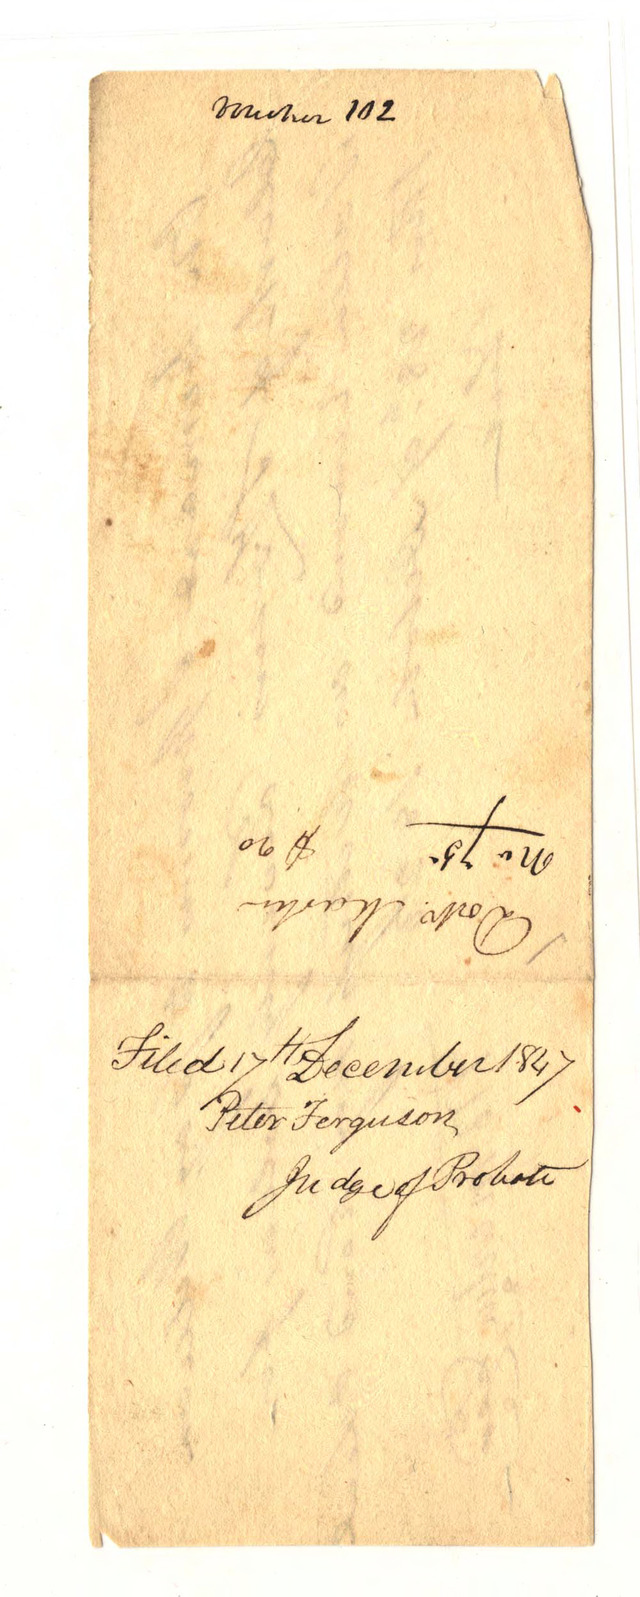 Voucher 102
Doctr. Martin
No 75
$90
Filed 17th December 1847
Peter Ferguson
Judge of Probate